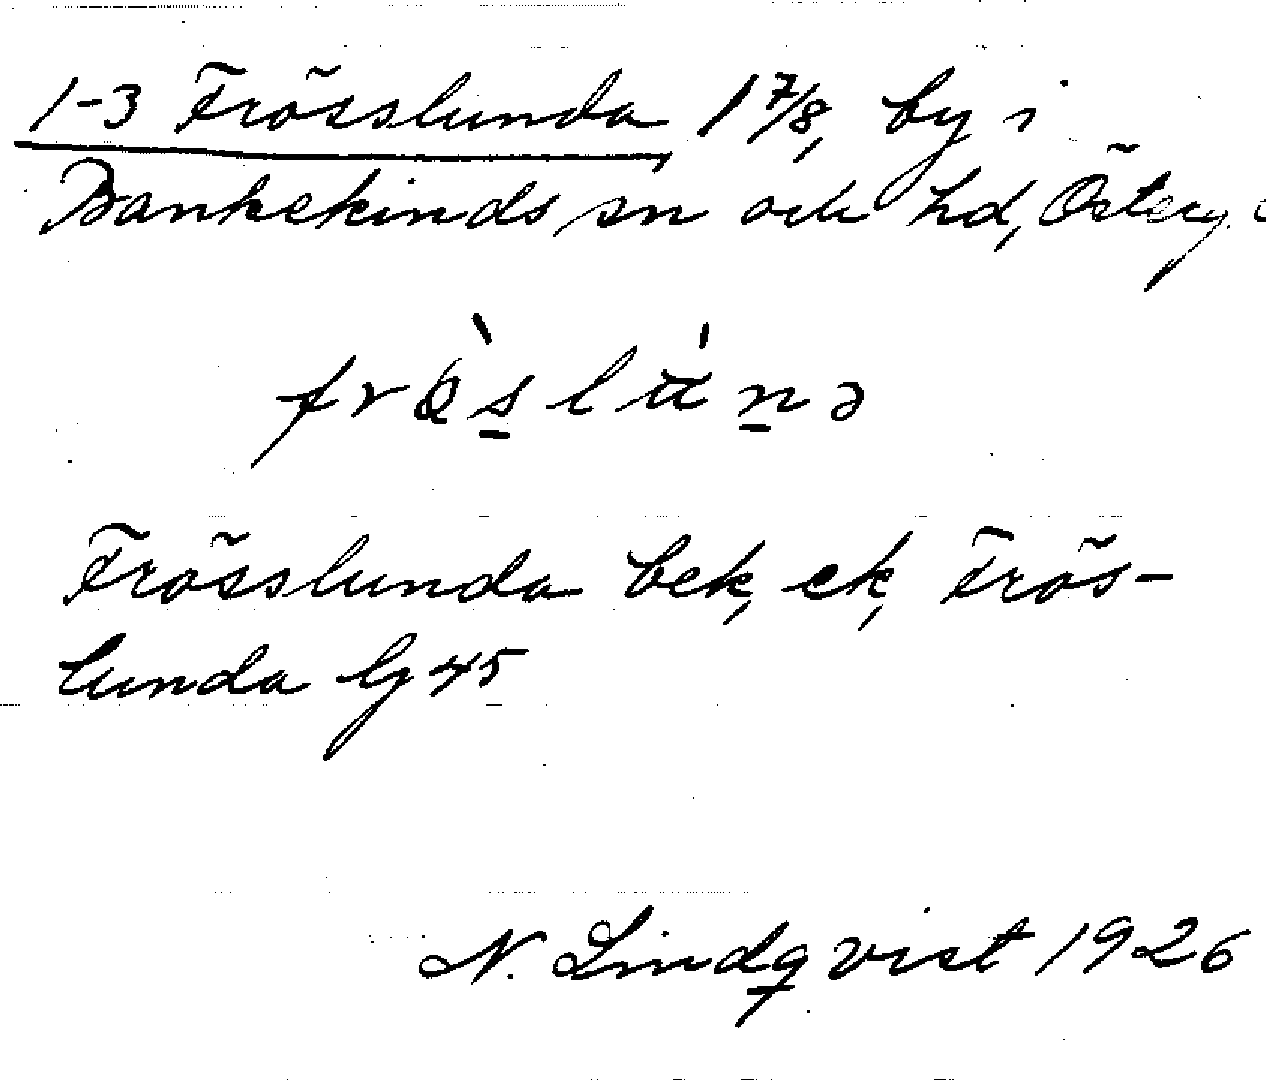 1-3 Frösslunda 1 7/8, by i
Bankekinds sn och hd, Österg.
frö̀slún̲ə
Frösslunda bek, ek, Frös-
lunda Gj 45
N. Lindqvist 1926